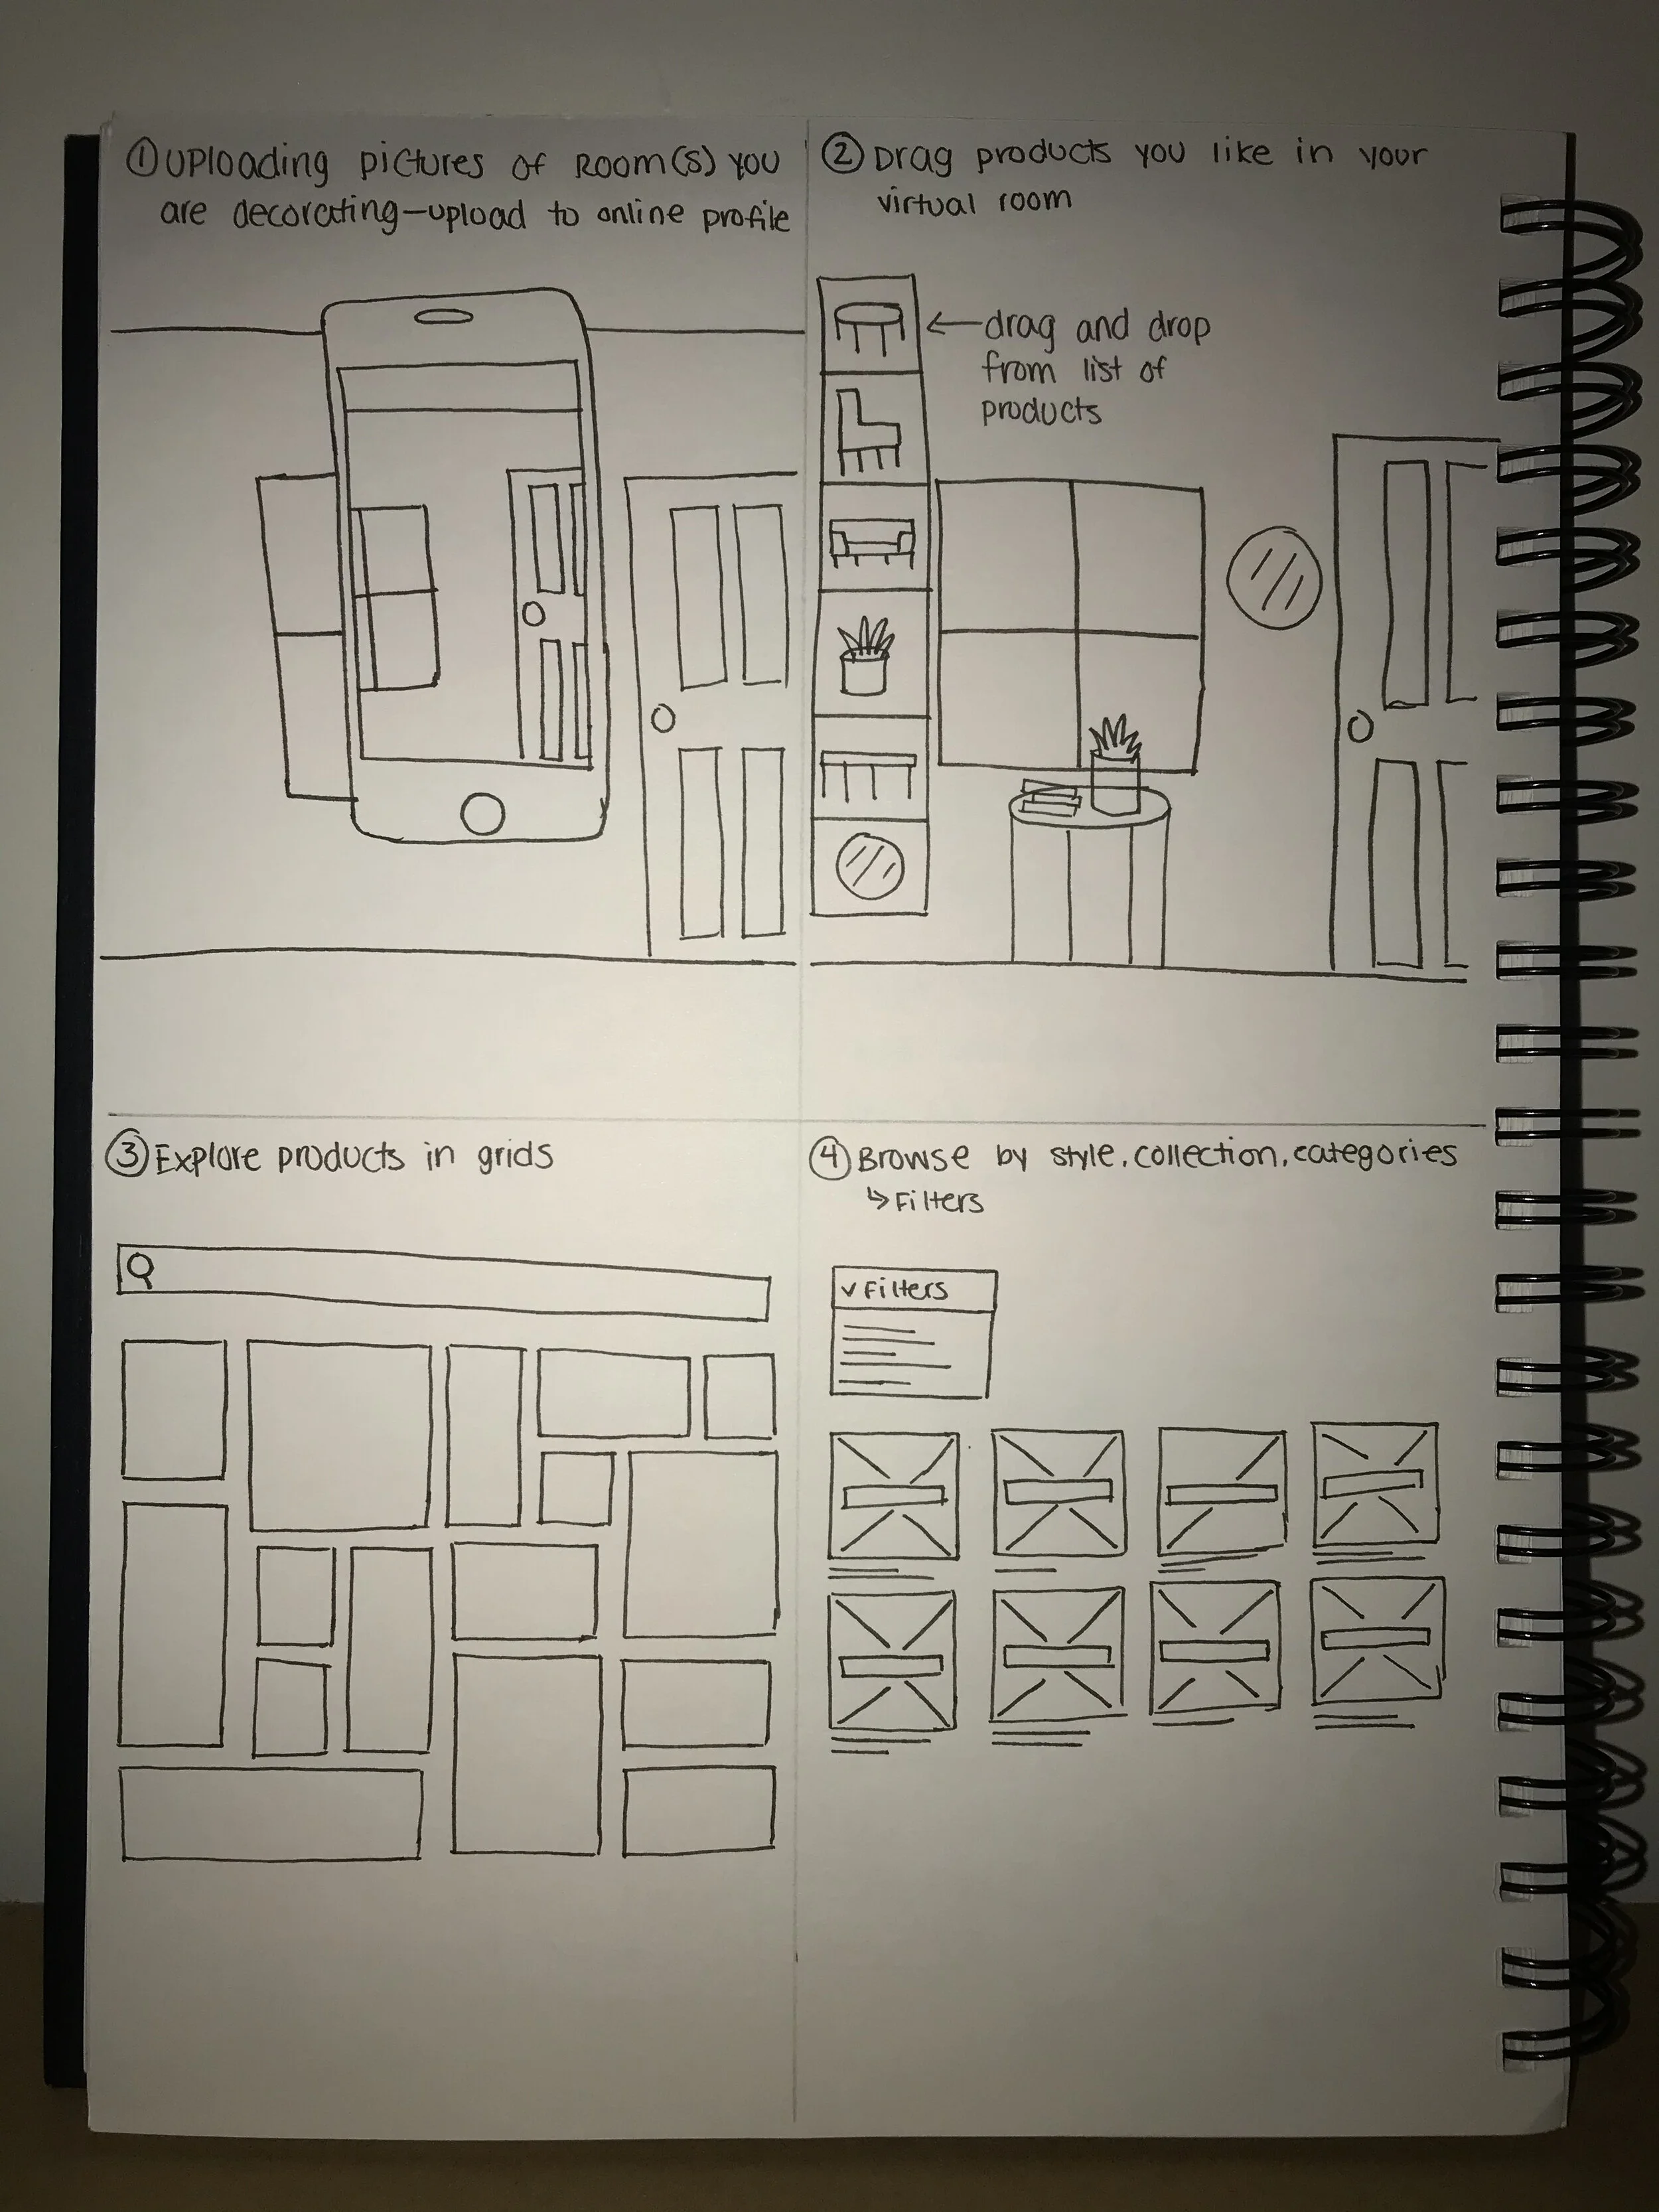 ① Uploading pictures of Room(s) you
are decorating–upload to online profile
② Drag products you like in your
virtual room
←drag and drop
from list of
products
③ Explore products in grids
④ Browse by style, collection, categories
↳ Filters
✓ Filters